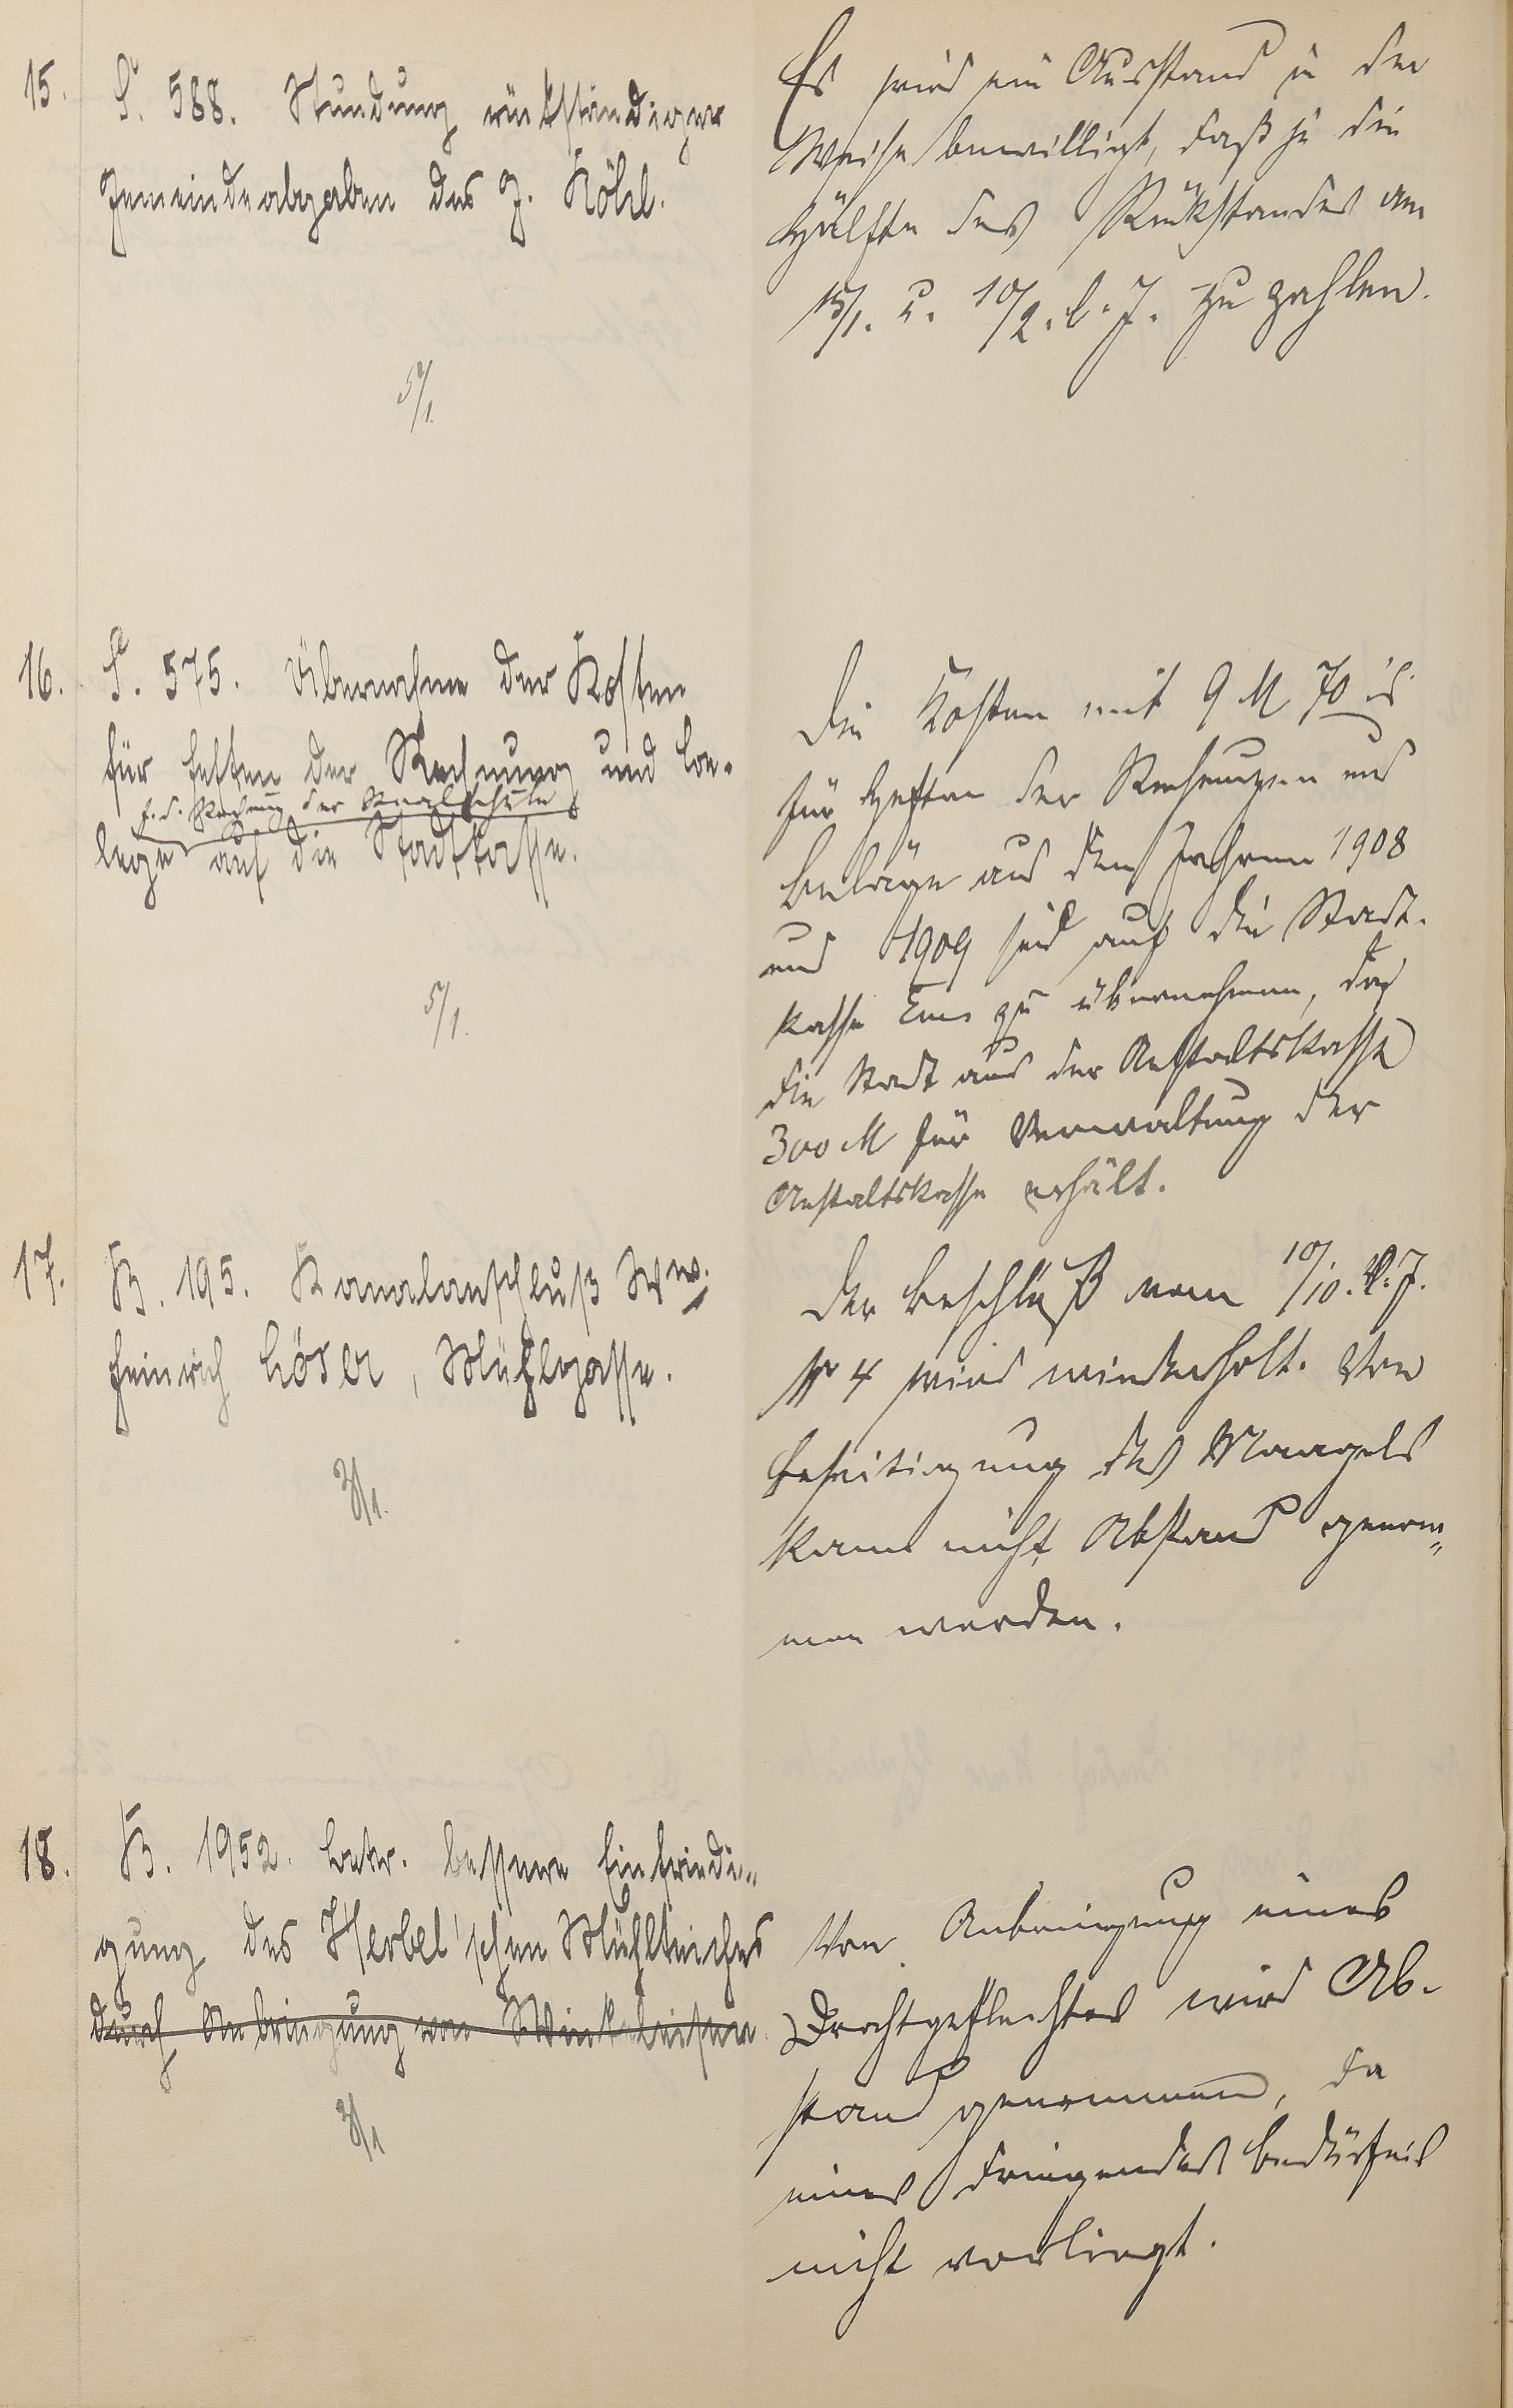 15. S. 588. Stundung rückständiger
Gemeindeabgaben des J. Köhl.
5/1.
Es wird ein Ausstand in der
Weise bewilligt, daß je die
Hälfte des Rückstandes am
15/1. u. 10/2. l. J. zu zahlen.
16. S. 575. Übernahme der Kosten
für Heften der Rechnung und Be-
f. d. Rechnung der Realschule
lege auf die Stadtkasse.
5/1.
Die Kosten mit 9 M 70
für Heften der Rechnungen und
Beläge aus den Jahren 1908
und 1909 sind auf die Stadt-
kasse Ems zu übernehmen, da
die Stadt aus der Anstaltskasse
300 M für Verwaltung der
Anstaltskasse erhält.
17. B. 195. Kanalanschluß Ww.
Heinrich Löser, Mühlgasse.
3/1.
Der Beschluß vom 10/10. v. J.
№ 4 wird wiederholt. Von
Beseitigung des Mangels
kann nicht Abstand genom„
men werden.
18. B. 1952. betr. bessere Einfriedi„
gung des Herbel'schen Mühlteiches
durch Anbringung von Winkeleisen.
3/1
Von Anbringung eines
Drahtgeflechtes wird Ab-
stand genommen, da
eines dringendes Bedürfnis
nicht vorliegt.